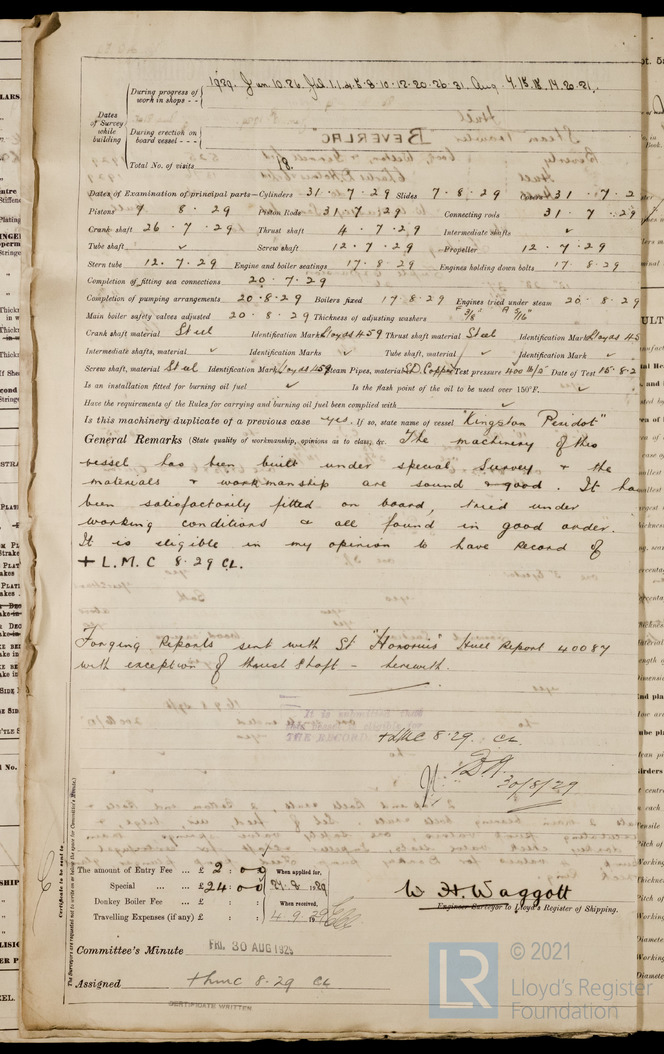 1929. Jan 10. 26. Jul 1. 1. 4. 5. 8. 10. 12. 20. 26. 31. Aug. 7. 15. 14. 20. 21.
During progress of work in shops - -
Dates of Survey while building
During erection on board vessel - - -
Total No. of visits 18.
Dates of Examination of principal parts—Cylinders 31 . 7 . 29 Slides 7 . 8 . 29 31 . 7 . 2
Pistons 9 8 . 29 Piston Rods 31 . 7 . 29 Connecting rods 31 . 7 . 29
Crank shaft 26 . 7 . 29 Thrust shaft 4 . 7 . 29 Intermediate shafts ✓
Tube shaft ✓ Screw shaft 12 . 7 . 29 Propeller 12 . 7 . 29
Stern tube 12 . 7 . 29 Engine and boiler seatings 17 . 8 . 29 Engines holding down bolts 17 . 8 . 29
Completion of fitting sea connections 20 . 7 . 29
Completion of pumping arrangements 20 . 8 . 29 Boilers fixed 17 . 8 . 29 Engines tried under steam 20 . 8 . 29
Main boiler safety valves adjusted 20 . 8 . 29 Thickness of adjusting washers F 3/8" A 5/16"
Crank shaft material Steel Identification Mark Lloyds 459 Thrust shaft material Steel Identification Mark Lloyds 45
Intermediate shafts, material ✓ Identification Marks ✓ Tube shaft, material ✓ Identification Mark ✓
Screw shaft, material Steel Identification Mark Lloyds 459 Steam Pipes, material S.D. Copper Test pressure 400 lb/□" Date of Test 15 . 8 . 2
Is an installation fitted for burning oil fuel ✓ Is the flash point of the oil to be used over 150°F. ✓
Have the requirements of the Rules for carrying and burning oil fuel been complied with ✓
Is this machinery duplicate of a previous case yes. If so, state name of vessel "Kingston Peridot"
General Remarks (State quality of workmanship, opinions as to class, &c. The machinery of this
vessel has been built under special Survey & the
materials & workmanship are sound & good. It has
been satisfactorily fitted on board, tried under
working conditions & all found in good order.
It is eligible in my opinion to have Record of
+ L.M.C 8.29 CL.
Forging Reports sent with St "Honorius" Hull Report 40087
with exception of thrust shaft - herewith.
It is submitted that
this vessel is eligible for
THE RECORD
+LMC 8.29. CL.
30/8/29
The amount of Entry Fee ... £ 2 : 0 0 When applied for,
Special ... £ 24 : 0 0 29. 8. 1929
Donkey Boiler Fee ... £ : : When received,
Travelling Expenses (if any) £ : : 4. 9. 1929
W H Waggott
Engineer Surveyor to Lloyd's Register of Shipping.
Committee's Minute FRI. 30 AUG 1929
Assigned + Lmc 8.29 CL
CERTIFICATE WRITTEN
Certificate to be sent to
The Surveyors are requested not to write on or below the space for Committee's Minute.
© 2021
Lloyd's Register
Foundation
LR